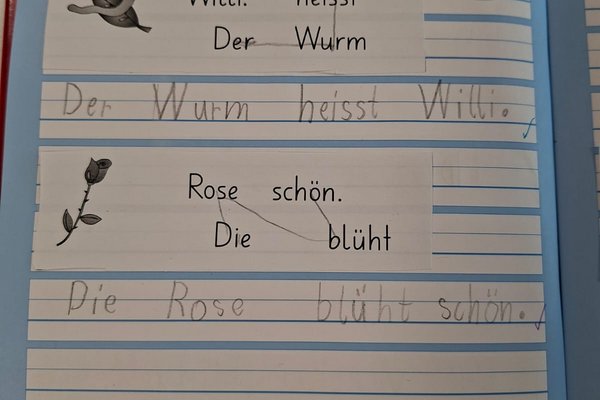 Willi. heisst
Der Wurm
Der Wurm heisst Willi.
Rose schön.
Die blüht
Die Rose blüht schön.